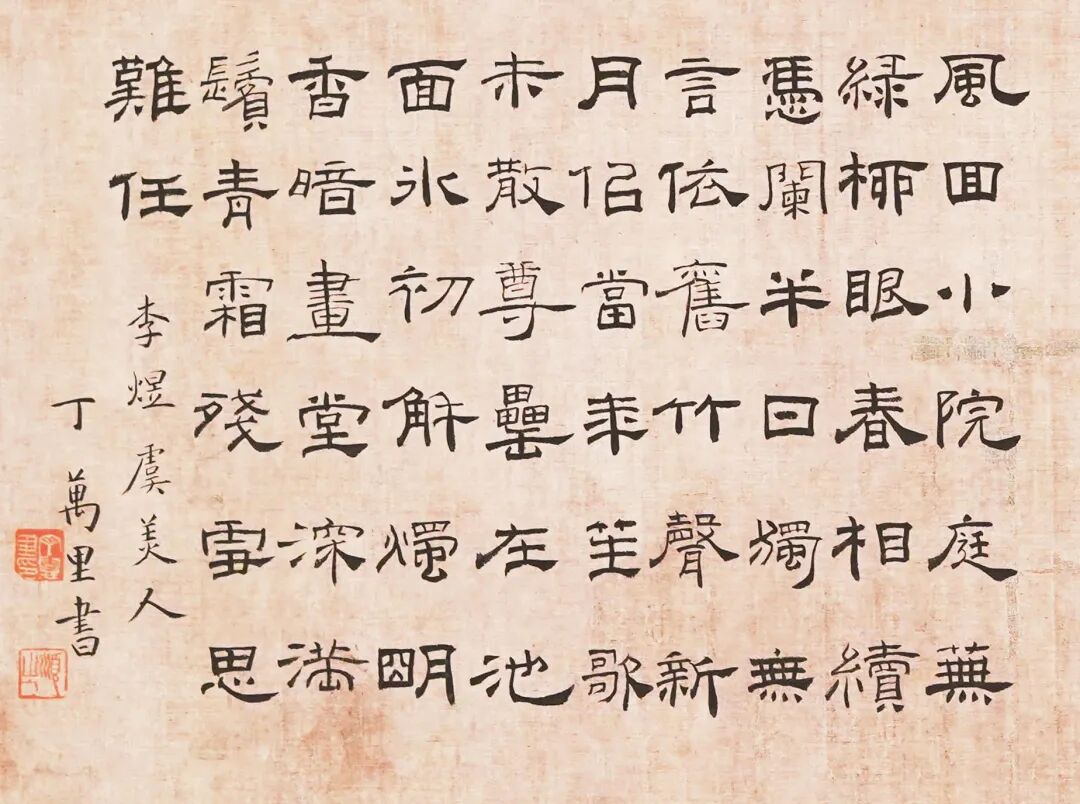 風回小院庭蕪
緑柳眼春相續
憑闌半日獨無
言依舊竹聲新
月佀當秊笙歌
未散尊罍在池
面冰初解燭明
香暗畫堂深滿
鬢青霜殘雪思
難任
李煜虞美人
丁萬里書